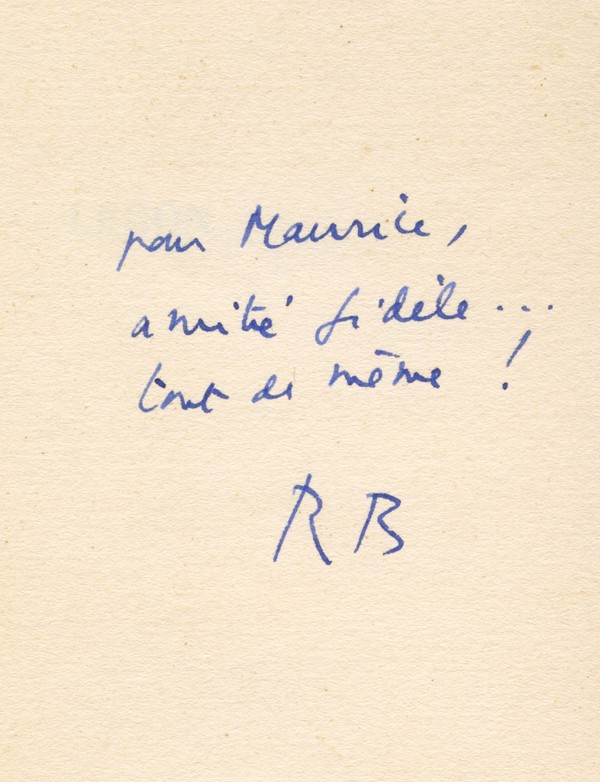 pour Maurice,
amitié fidèle...
tout de même !
RB